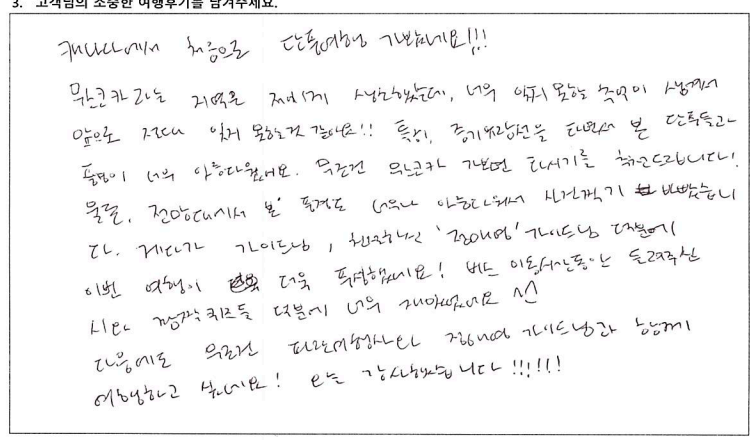 3. 고객님의 소중한 여행후기를 남겨주세요.
캐나다에서 처음으로 단풍여행 가봤네요!!!
무스코카라는 지역은 저에게 생소했는데, 너무 잊지 못할 추억이 생겨서
앞으로 절대 잊지 못할것 같아요!! 특히, 증기유람선을 타면서 본 단풍들과
풍경이 너무 아름다웠어요. 무조건 무스코카 가보면 타시기를 추천드립니다!
물론, 전망대에서 본 풍경도 너무나 아름다워서 사진찍기 바빴습니
다. 게다가 가이드님, 친절하신 '정해영' 가이드님 덕분에
이번 여행이 더욱 풍성했네요! 버스 이동시간동안 들려주신
시와 깜짝퀴즈들 덕분에 너무 재미있었네요 ^^
다음에도 무조건 파란여행사와 정해영 가이드님과 함께
여행하고 싶네요! 오늘 감사했습니다!!!!!!